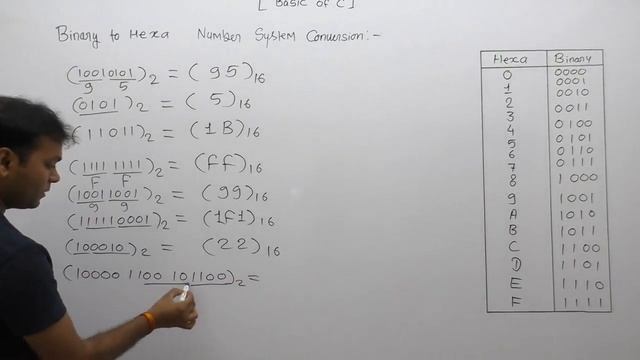 [ Basic of C ]
Binary to Hexa Number System Conversion:-
(10010101)₂ = (95)₁₆
9 5
(0101)₂ = (5)₁₆
(11011)₂ = (1B)₁₆
(1111 1111)₂ = (ff)₁₆
F F
(10011001)₂ = (99)₁₆
9 9
(111110001)₂ = (1f1)₁₆
(100010)₂ = (22)₁₆
(10000 1100 101100)₂ =
Hexa Binary
0 0000
1 0001
2 0010
3 0011
4 0100
5 0101
6 0110
7 0111
8 1000
9 1001
A 1010
B 1011
C 1100
D 1101
E 1110
F 1111